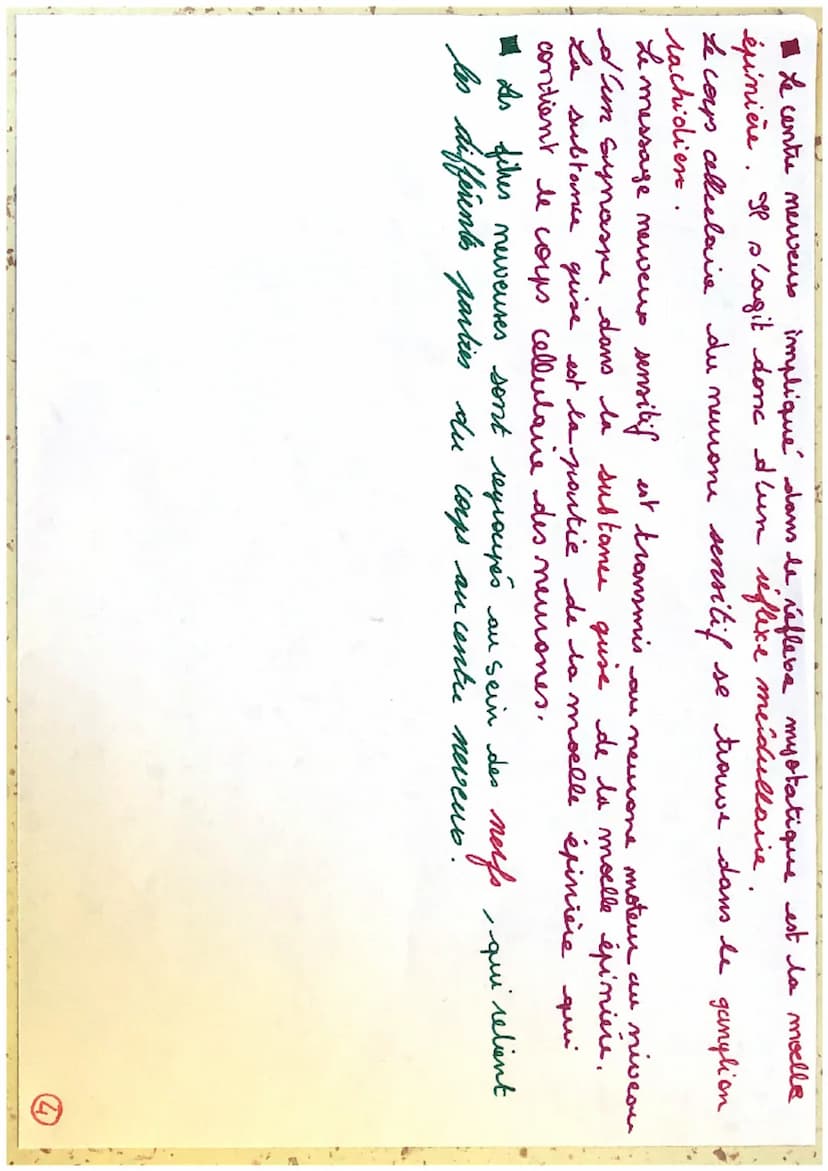 ■ Le centre nerveux impliqué dans le réflexe myotatique est la moelle
épinière. Il s'agit donc d'un réflexe médullaire.
Le corps cellulaire du neurone sensitif se trouve dans le ganglion
rachidien.
Le message nerveux sensitif est transmis au neurone moteur au niveau
d'un synaspe dans la substance grise de la moelle épinière.
La substance grise est la partie de la moelle épinière qui
contient le corps cellulaire des neurones.
■ Les fibres nerveuses sont regroupés au sein des nerfs, qui relient
les différents parties du corps au centre nerveux.
4